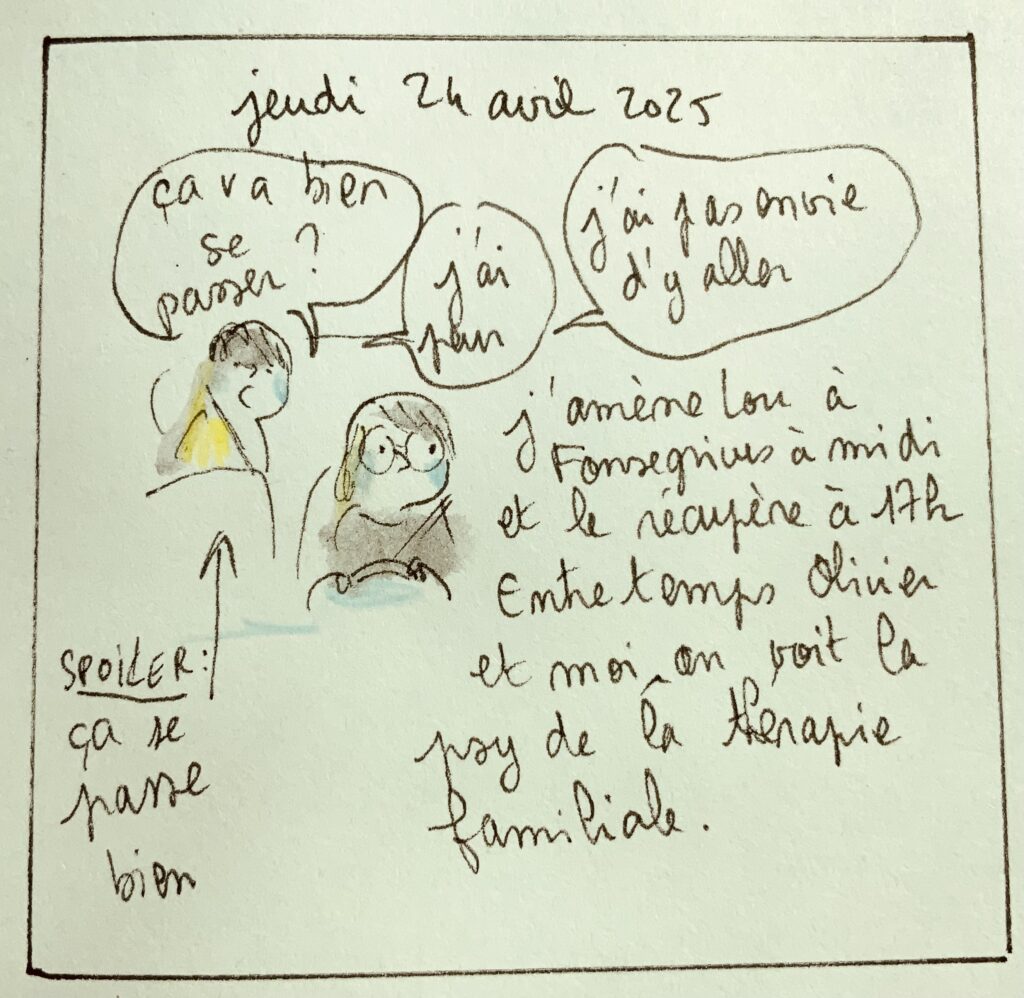 jeudi 24 avril 2025
ça va bien
se
passer ?
j'ai
peur
j'ai pas envie
d'y aller
j'amène Lou à
Fonsegrives à midi
et le récupère à 17h
Entre temps Olivier
et moi on voit la
psy de la thérapie
familiale.
SPOILER :
ça se
passe
bien